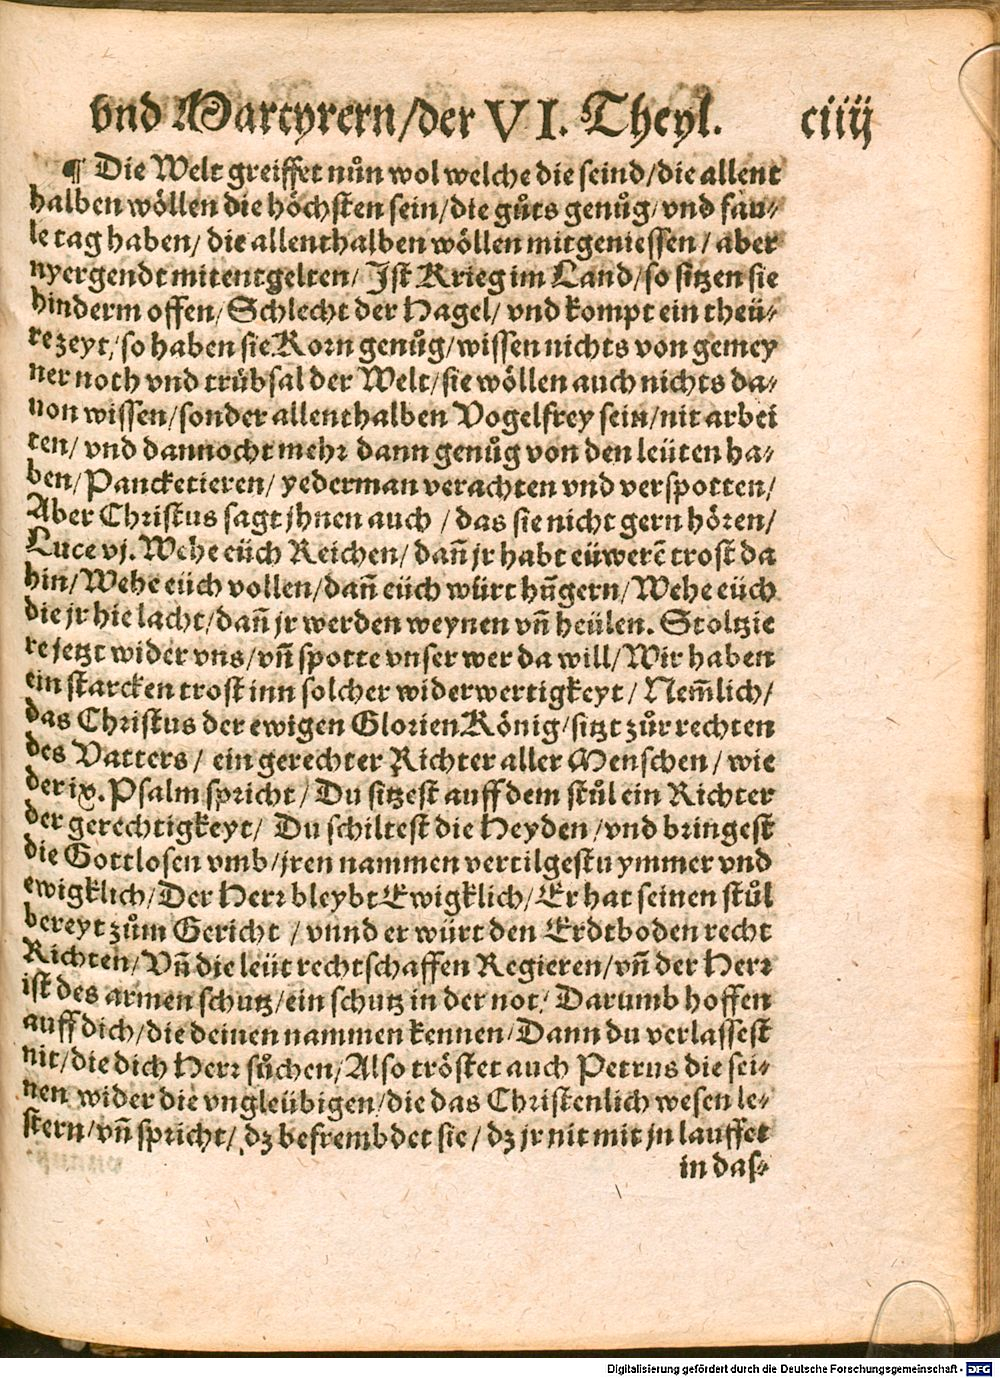 vnd Martyrern/der VI. Theyl. ciiij
¶ Die Welt greiffet nůn wol welche die seind/die allent
halben wöllen die höchsten sein/die gůts genůg/vnd fau⸗
le tag haben/ die allenthalben wöllen mitgeniessen/ aber
nyergendt mitentgelten/ Ist Krieg im Land/so sitzen sie
hinderm offen/Schlecht der Hagel/ vnd kompt ein theü⸗
re zeyt/so haben sie Korn genůg/wissen nichts von gemey
ner noth vnd trübsal der Welt/sie wöllen auch nichts da⸗
uon wissen/sonder allenthalben Vogelfrey sein/nit arbei
ten/ vnd dannocht mehr dann genůg von den leüten ha⸗
ben/Pancketieren/ yederman verachten vnd verspotten/
Aber Christus sagt jhnen auch / das sie nicht gern hören/
Luce vj. Wehe eüch Reichen/ dañ jr habt eüwerẽ trost da
hin/Wehe eüch vollen/dañ eüch würt hũgern/Wehe eüch
die jr hie lacht/dañ jr werden weynen vñ heülen. Stoltzie
re jetzt wider vns/vñ spotte vnser wer da will/Wir haben
ein starcken trost inn solcher widerwertigkeyt/ Nem̃lich/
das Christus der ewigen Glorien König/sitzt zůr rechten
des Vatters/ ein gerechter Richter aller Menschen/ wie
der ix. Psalm spricht/ Du sitzest auff dem stůl ein Richter
der gerechtigkeyt/ Du schiltest die Heyden/vnd bringest
die Gottlosen vmb/jren nammen vertilgestu ymmer vnd
ewigklich/Der Herr bleybt Ewigklich/Er hat seinen stůl
bereyt zům Gericht / vnnd er würt den Erdtboden recht
Richten/Vñ die leüt rechtschaffen Regieren/vñ der Herr
ist des armen schutz/ein schutz in der not/ Darumb hoffen
auff dich/die deinen nammen kennen/Dann du verlassest
nit/die dich Herr sůchen/Also tröstet auch Petrus die sei⸗
nen wider die vngleübigen/die das Christenlich wesen le⸗
stern/vñ spricht/ dz befrembdet sie/ dz jr nit mit jn lauffet
in das⸗
Digitalisierung gefördert durch die Deutsche Forschungsgemeinschaft - DFG